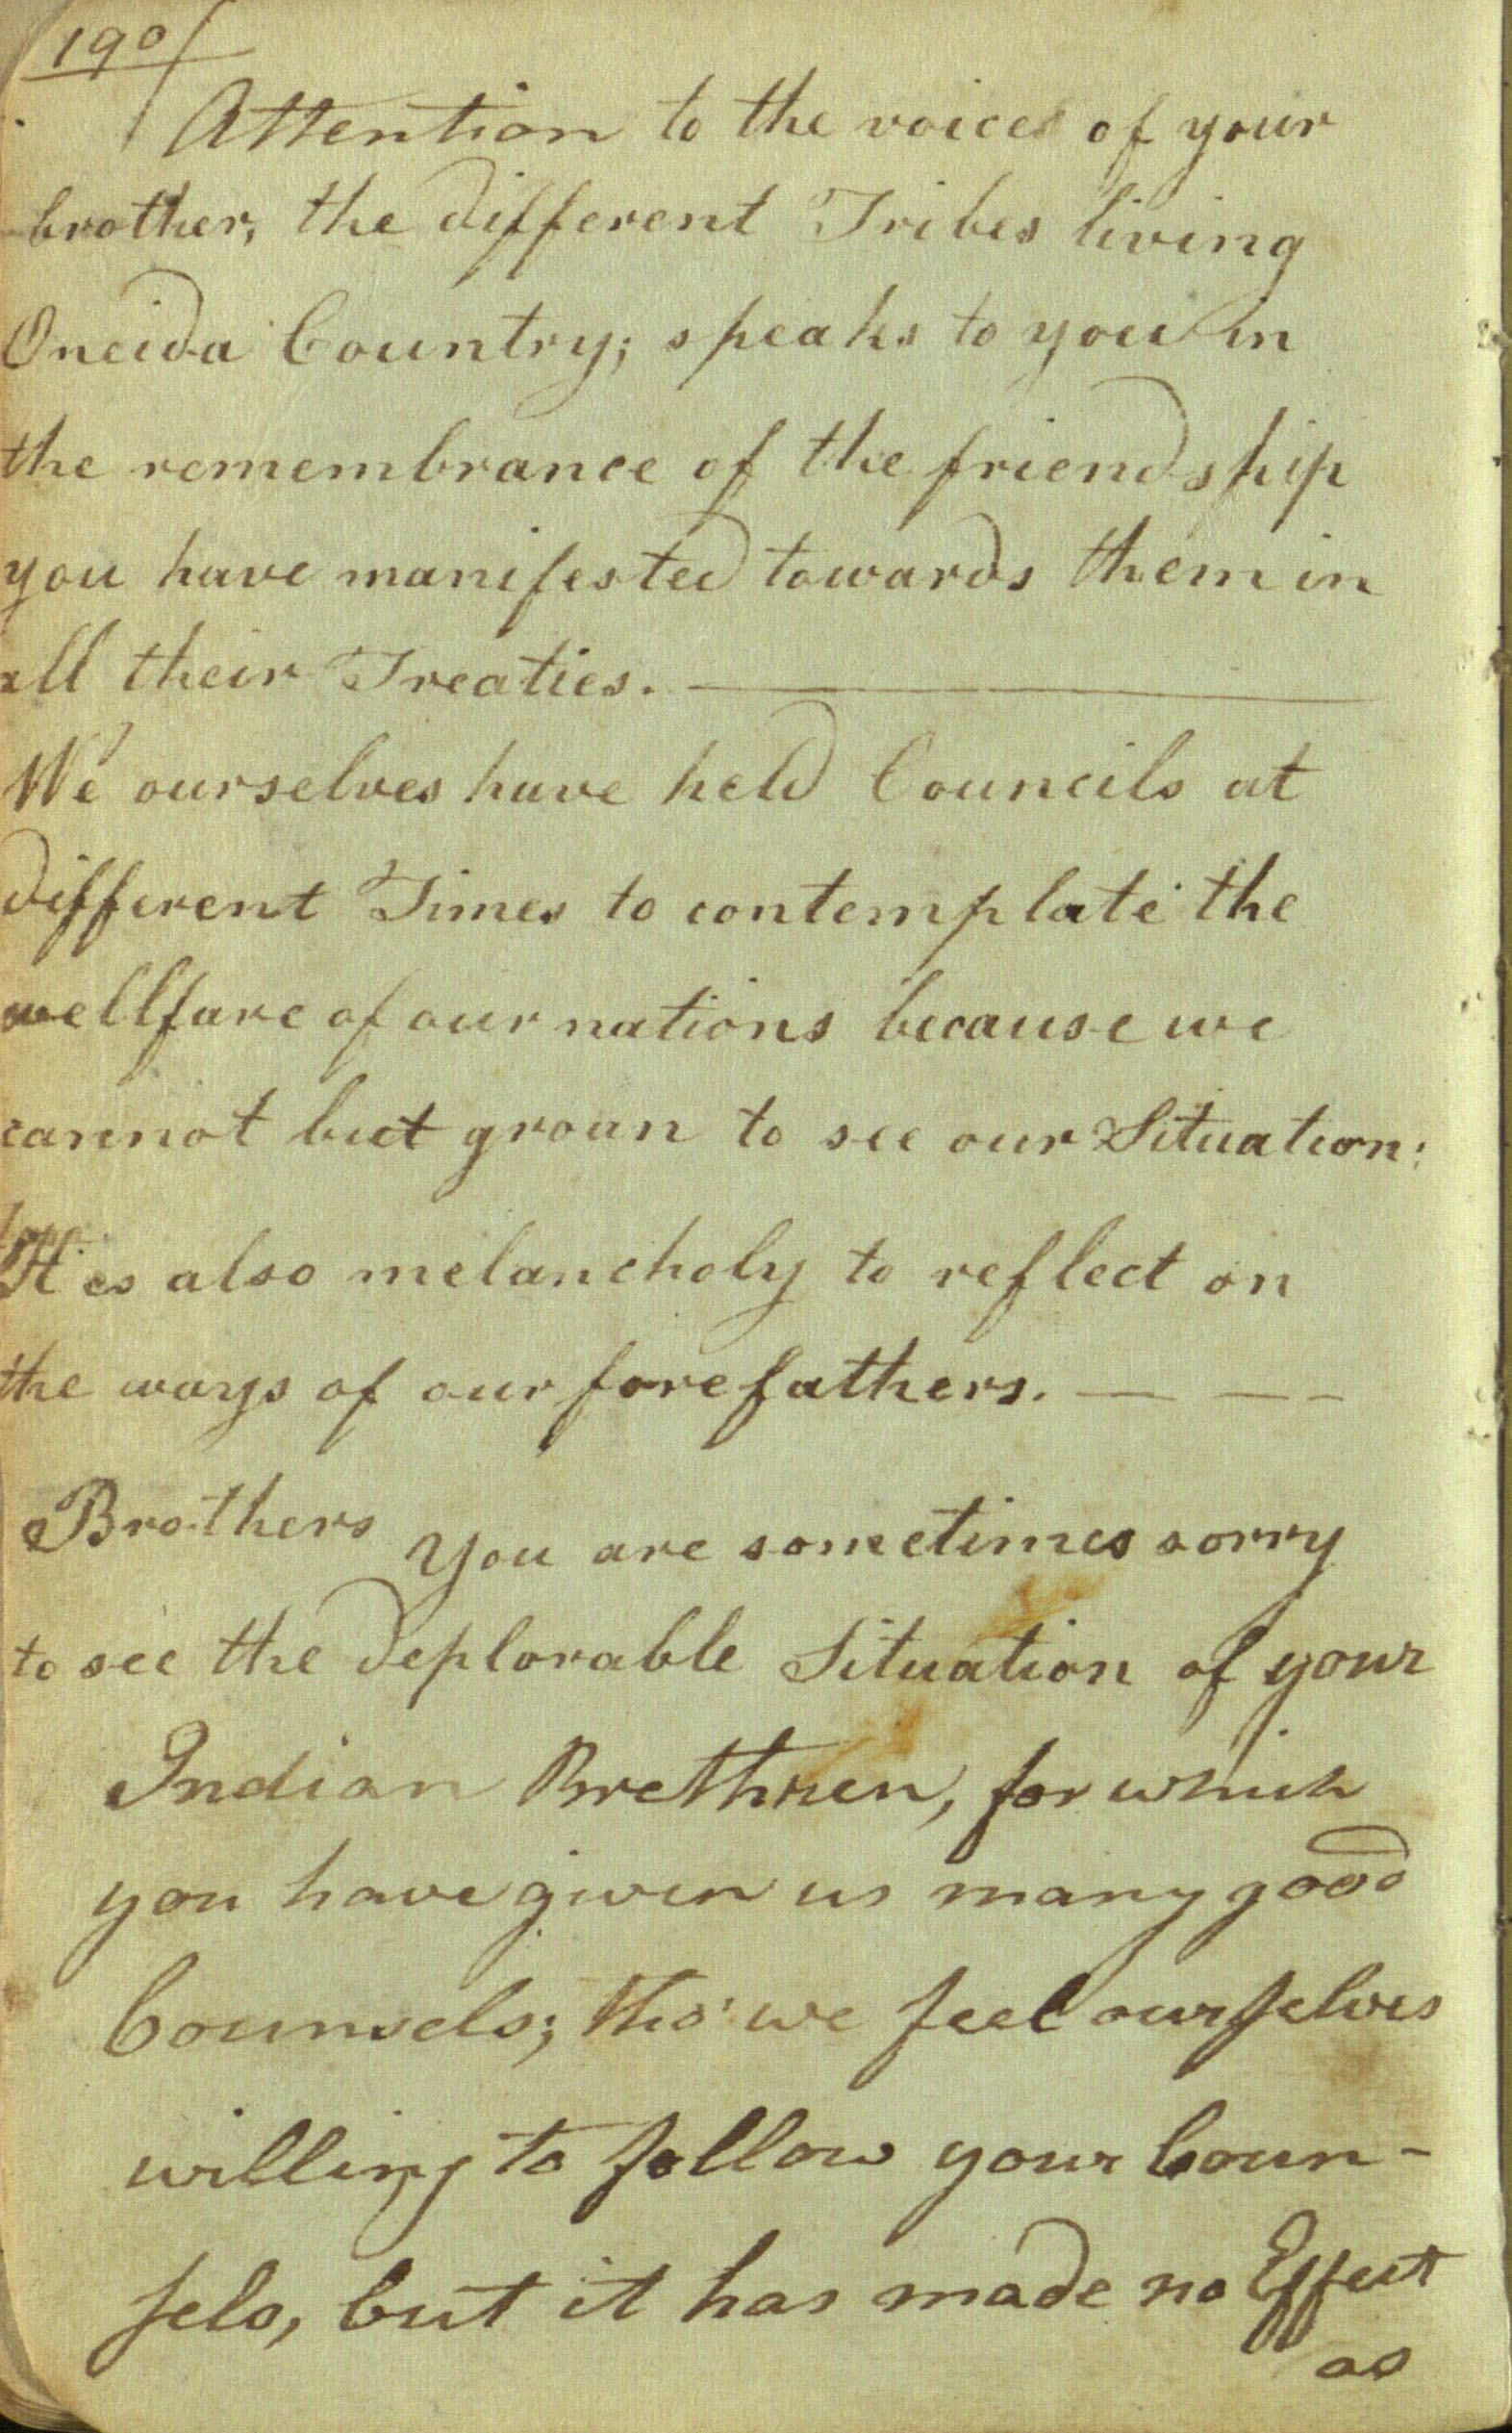 190
Attention to the voices of your
brother, the different Tribes living
Oneida Country; speaks to you in
the remembrance of the friendship
you have manifested towards them in
all their Treaties. —
We ourselves have held Councils at
different Times to contemplate the
wellfare of our nations because we
cannot but groan to see our Situation:
It is also melancholy to reflect on
the ways of our forefathers. — — –
Brothers You are sometimes sorry
to see the deplorable Situation of your
Indian Brethren, for which
you have given us many good
Counsels; tho' we feel ourselves
willing to follow your Coun-
sels, but it has made no Effect
as